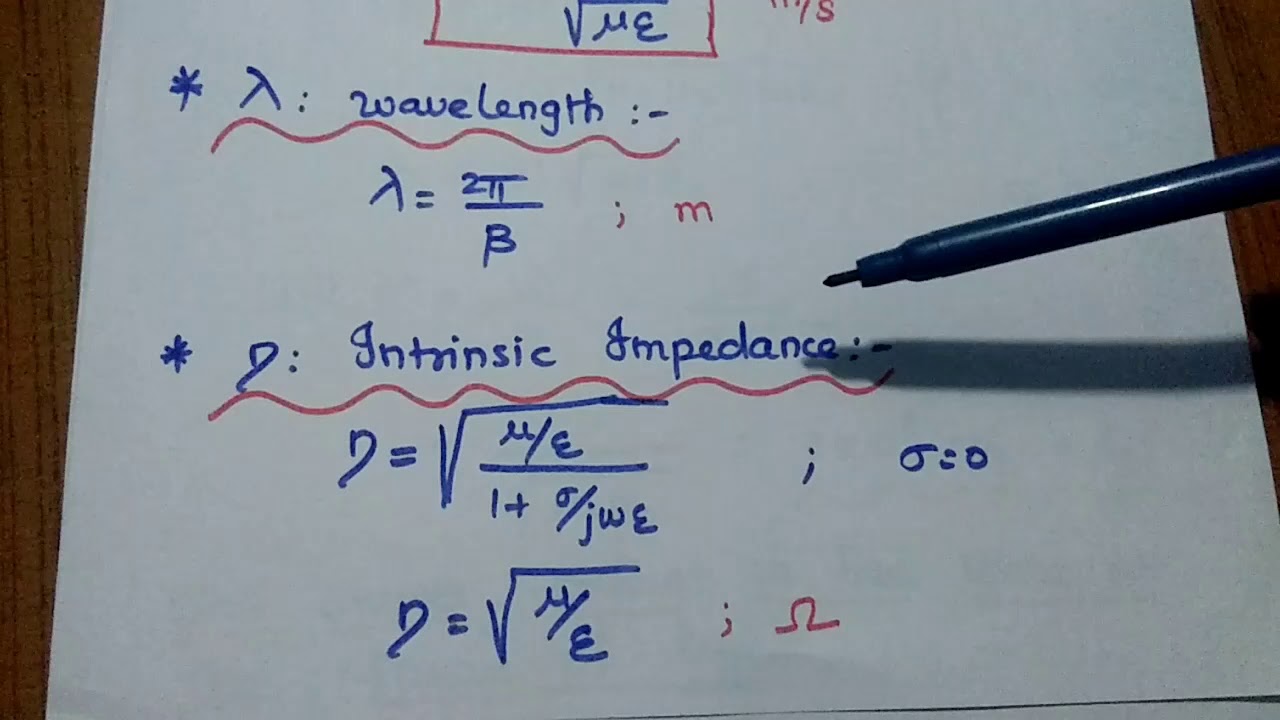 √με m/s
* λ: wavelength :-
λ = 2π/β ; m
* η: Intrinsic Impedance:-
η = √((μ/ε)/(1+ σ/jωε)) ; σ=0
η = √(μ/ε) ; Ω